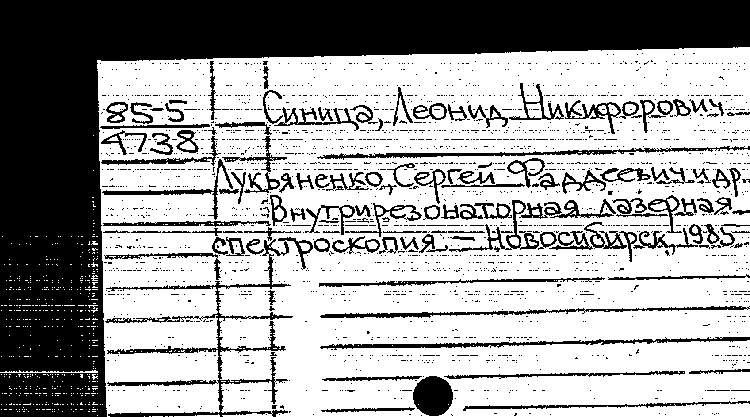 85-5 Синица, Леонид Никифорович
4738
Лукьяненко, Сергей Фаддеевич и др.
Внутрирезонаторная лазерная
спектроскопия. – Новосибирск, 1985